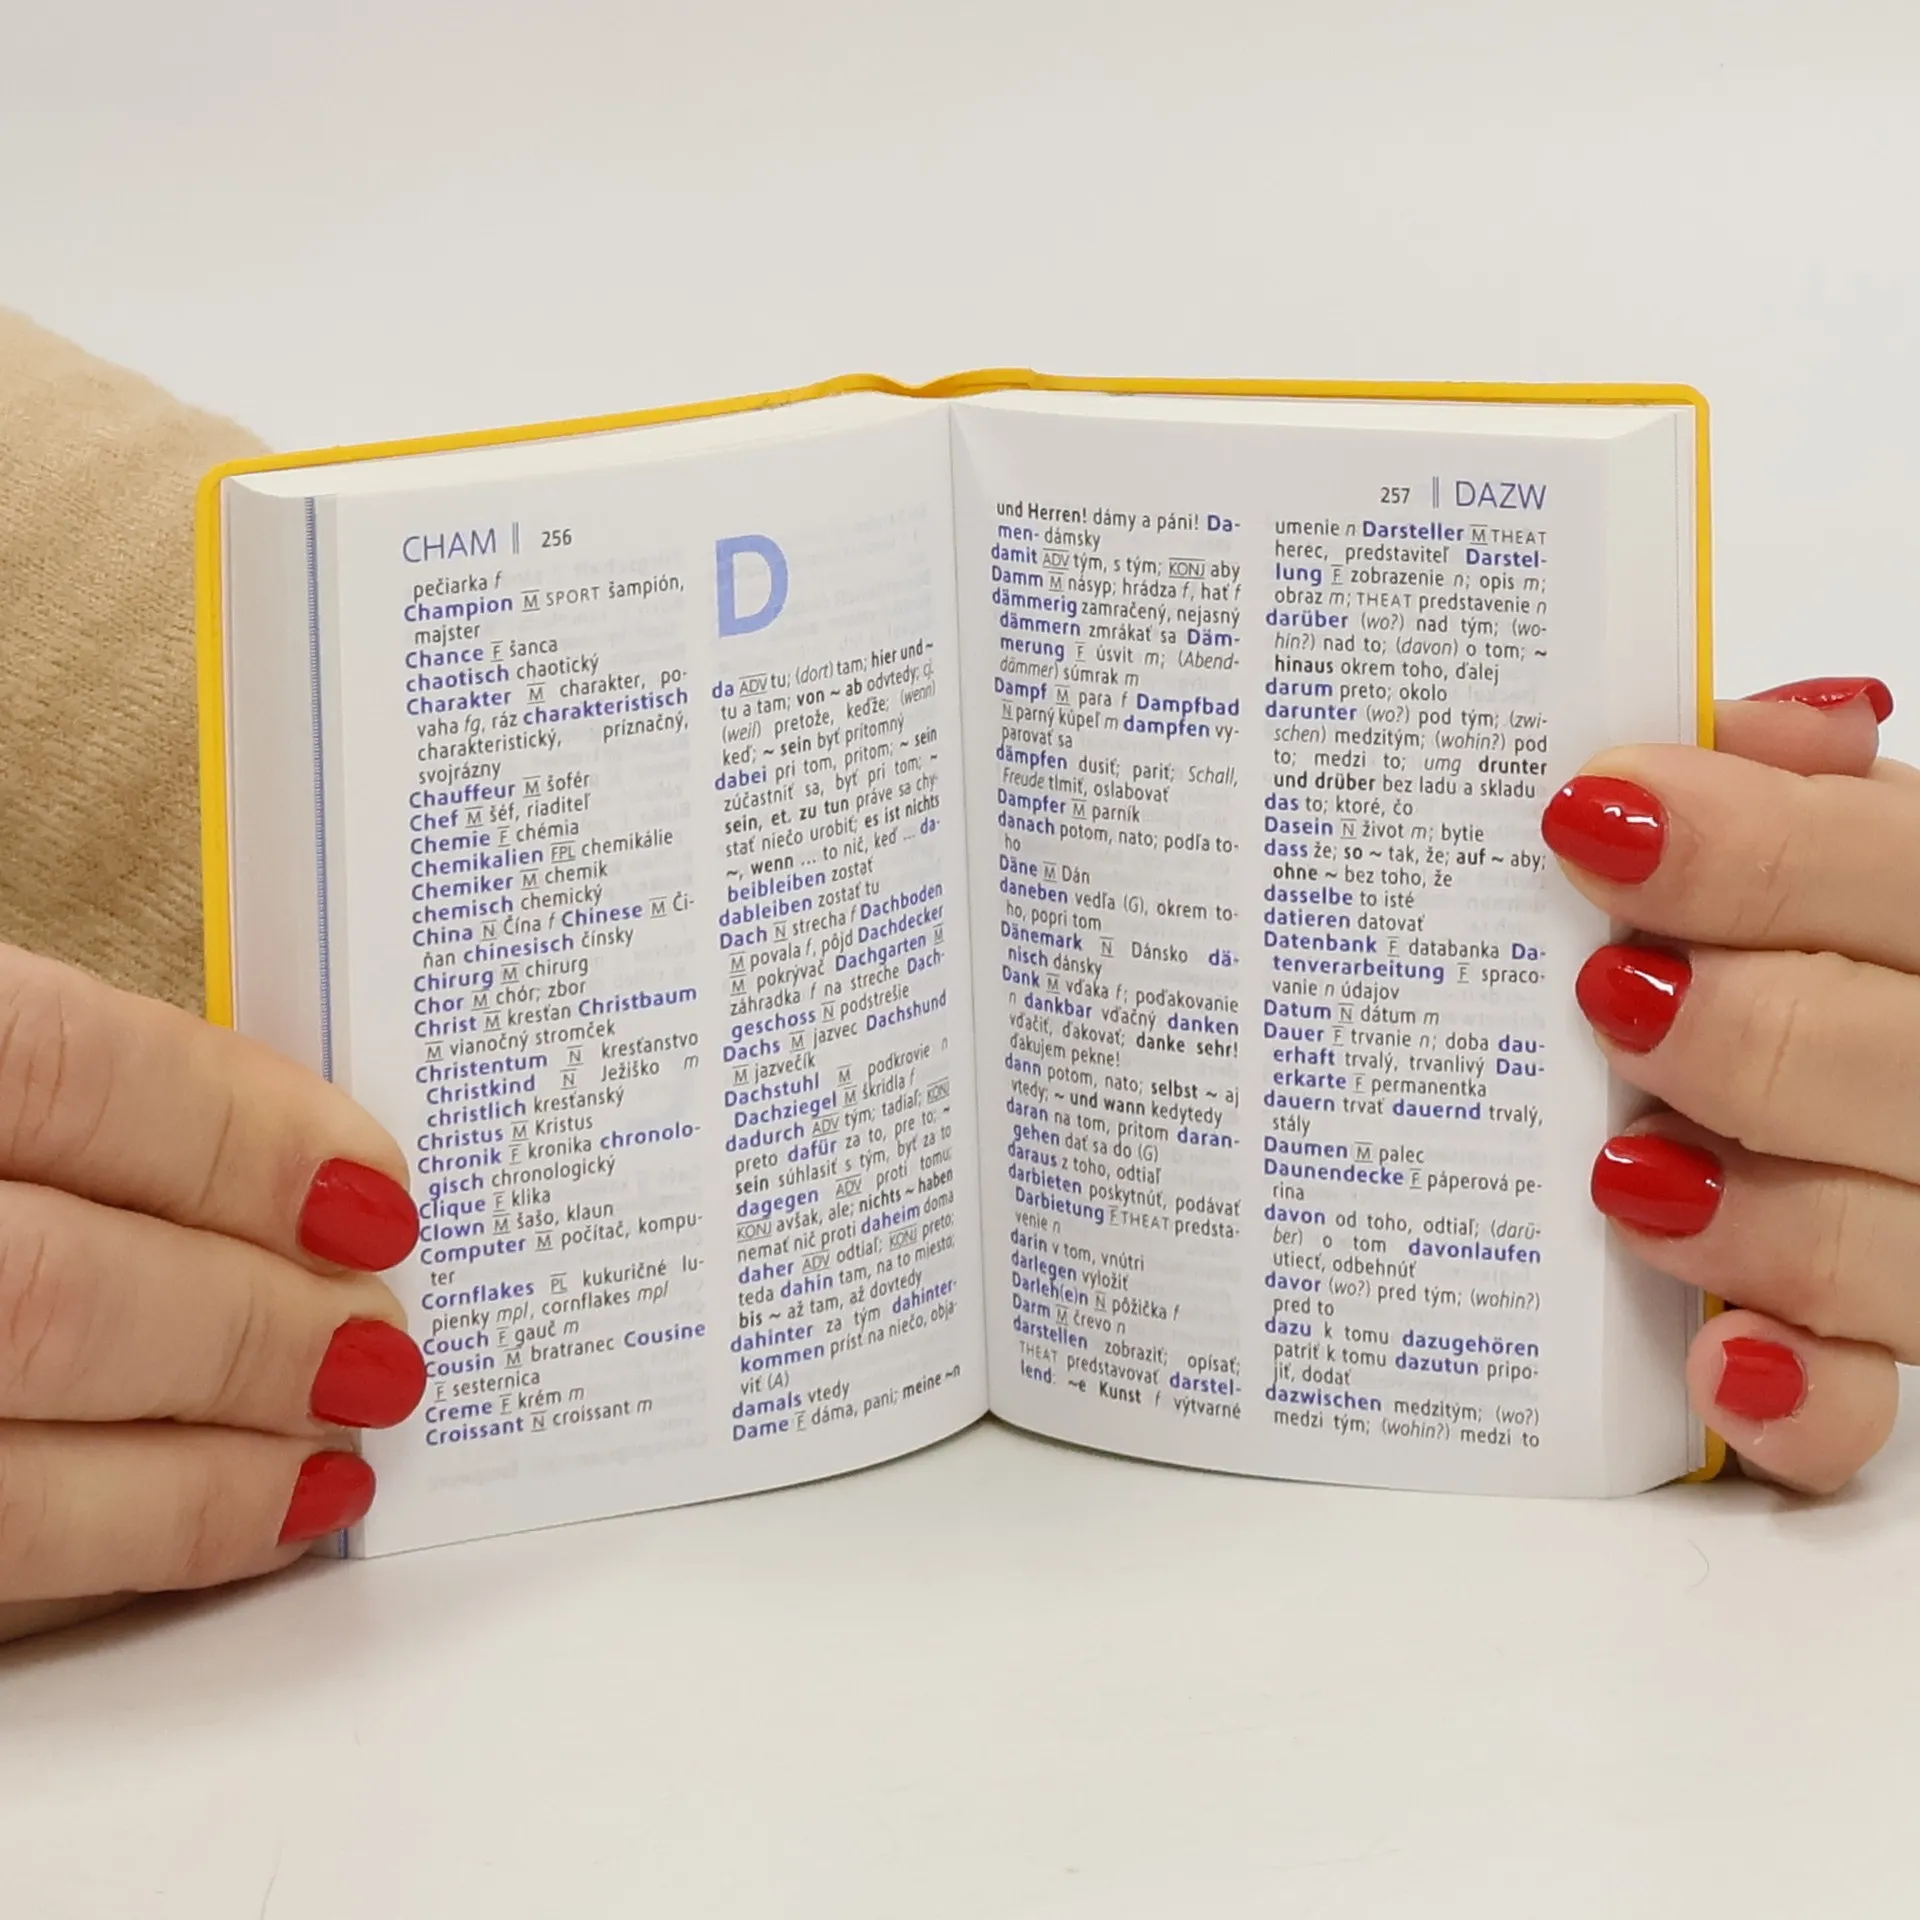 CHAM || 256
pečiarka f
Champion M SPORT šampión,
majster
Chance F šanca
chaotisch chaotický
Charakter M charakter, po-
vaha fg, ráz charakteristisch
charakteristický, príznačný,
svojrázny
Chauffeur M šofér
Chef M šéf, riaditeľ
Chemie F chémia
Chemikalien FPL chemikálie
Chemiker M chemik
chemisch chemický
China N Čína f Chinese M Čí-
ňan chinesisch čínsky
Chirurg M chirurg
Chor M chór; zbor
Christ M kresťan Christbaum
M vianočný stromček
Christentum N kresťanstvo
Christkind N Ježiško m
christlich kresťanský
Christus M Kristus
Chronik F kronika chronolo-
gisch chronologický
Clique F klika
Clown M šašo, klaun
Computer M počítač, kompu-
ter
Cornflakes PL kukuričné lu-
pienky mpl, cornflakes mpl
Couch F gauč m
Cousin M bratranec Cousine
F sesternica
Creme F krém m
Croissant N croissant m
D
da ADV tu; (dort) tam; hier und ~
tu a tam; von ~ ab odvtedy; cj.
(weil) pretože, keďže; (wenn)
keď; ~ sein byť prítomný
dabei pri tom, pritom; ~ sein
zúčastniť sa, byť pri tom; ~
sein, et. zu tun práve sa chy-
stať niečo urobiť; es ist nichts
~, wenn ... to nič, keď ... da-
beibleiben zostať
dableiben zostať tu
Dach N strecha f Dachboden
M povala f, pôjd Dachdecker
M pokrývač Dachgarten M
záhradka f na streche Dach-
geschoss N podstrešie
Dachs M jazvec Dachshund
M jazvečík
Dachstuhl M podkrovie n
Dachziegel M škridla f
dadurch ADV tým; tadiaľ; KONJ
preto dafür za to, pre to; ~
sein súhlasiť s tým, byť za to
dagegen ADV proti tomu;
KONJ avšak, ale; nichts ~ haben
nemať nič proti daheim doma
daher ADV odtiaľ; KONJ preto;
teda dahin tam, na to miesto;
bis ~ až tam, až dovtedy
dahinter za tým dahinter-
kommen prísť na niečo, obja-
viť (A)
damals vtedy
Dame F dáma, pani; meine ~n
257 || DAZW
und Herren! dámy a páni! Da-
men- dámsky
damit ADV tým, s tým; KONJ aby
Damm M násyp; hrádza f, hať f
dämmerig zamračený, nejasný
dämmern zmrákať sa Däm-
merung F úsvit m; (Abend-
dämmer) súmrak m
Dampf M para f Dampfbad
N parný kúpeľ m dampfen vy-
parovať sa
dämpfen dusiť; pariť; Schall,
Freude tlmiť, oslabovať
Dampfer M parník
danach potom, nato; podľa to-
ho
Däne M Dán
daneben vedľa (G), okrem to-
ho, popri tom
Dänemark N Dánsko dä-
nisch dánsky
Dank M vďaka f; poďakovanie
n dankbar vďačný danken
vďačiť, ďakovať; danke sehr!
ďakujem pekne!
dann potom, nato; selbst ~ aj
vtedy; ~ und wann kedytedy
daran na tom, pritom daran-
gehen dať sa do (G)
daraus z toho, odtiaľ
darbieten poskytnúť, podávať
Darbietung F THEAT predsta-
venie n
darin v tom, vnútri
darlegen vyložiť
Darleh(e)n N pôžička f
Darm M črevo n
darstellen zobraziť; opísať;
THEAT predstavovať darstel-
lend: ~e Kunst f výtvarné
umenie n Darsteller M THEAT
herec, predstaviteľ Darstel-
lung F zobrazenie n; opis m;
obraz m; THEAT predstavenie n
darüber (wo?) nad tým; (wo-
hin?) nad to; (davon) o tom; ~
hinaus okrem toho, ďalej
darum preto; okolo
darunter (wo?) pod tým; (zwi-
schen) medzitým; (wohin?) pod
to; medzi to; umg drunter
und drüber bez ladu a skladu
das to; ktoré, čo
Dasein N život m; bytie
dass že; so ~ tak, že; auf ~ aby;
ohne ~ bez toho, že
dasselbe to isté
datieren datovať
Datenbank F databanka Da-
tenverarbeitung F spraco-
vanie n údajov
Datum N dátum m
Dauer F trvanie n; doba dau-
erhaft trvalý, trvanlivý Dau-
erkarte F permanentka
dauern trvať dauernd trvalý,
stály
Daumen M palec
Daunendecke F páperová pe-
rina
davon od toho, odtiaľ; (darü-
ber) o tom davonlaufen
utiecť, odbehnúť
davor (wo?) pred tým; (wohin?)
pred to
dazu k tomu dazugehören
patriť k tomu dazutun pripo-
jiť, dodať
dazwischen medzitým; (wo?)
medzi tým; (wohin?) medzi to